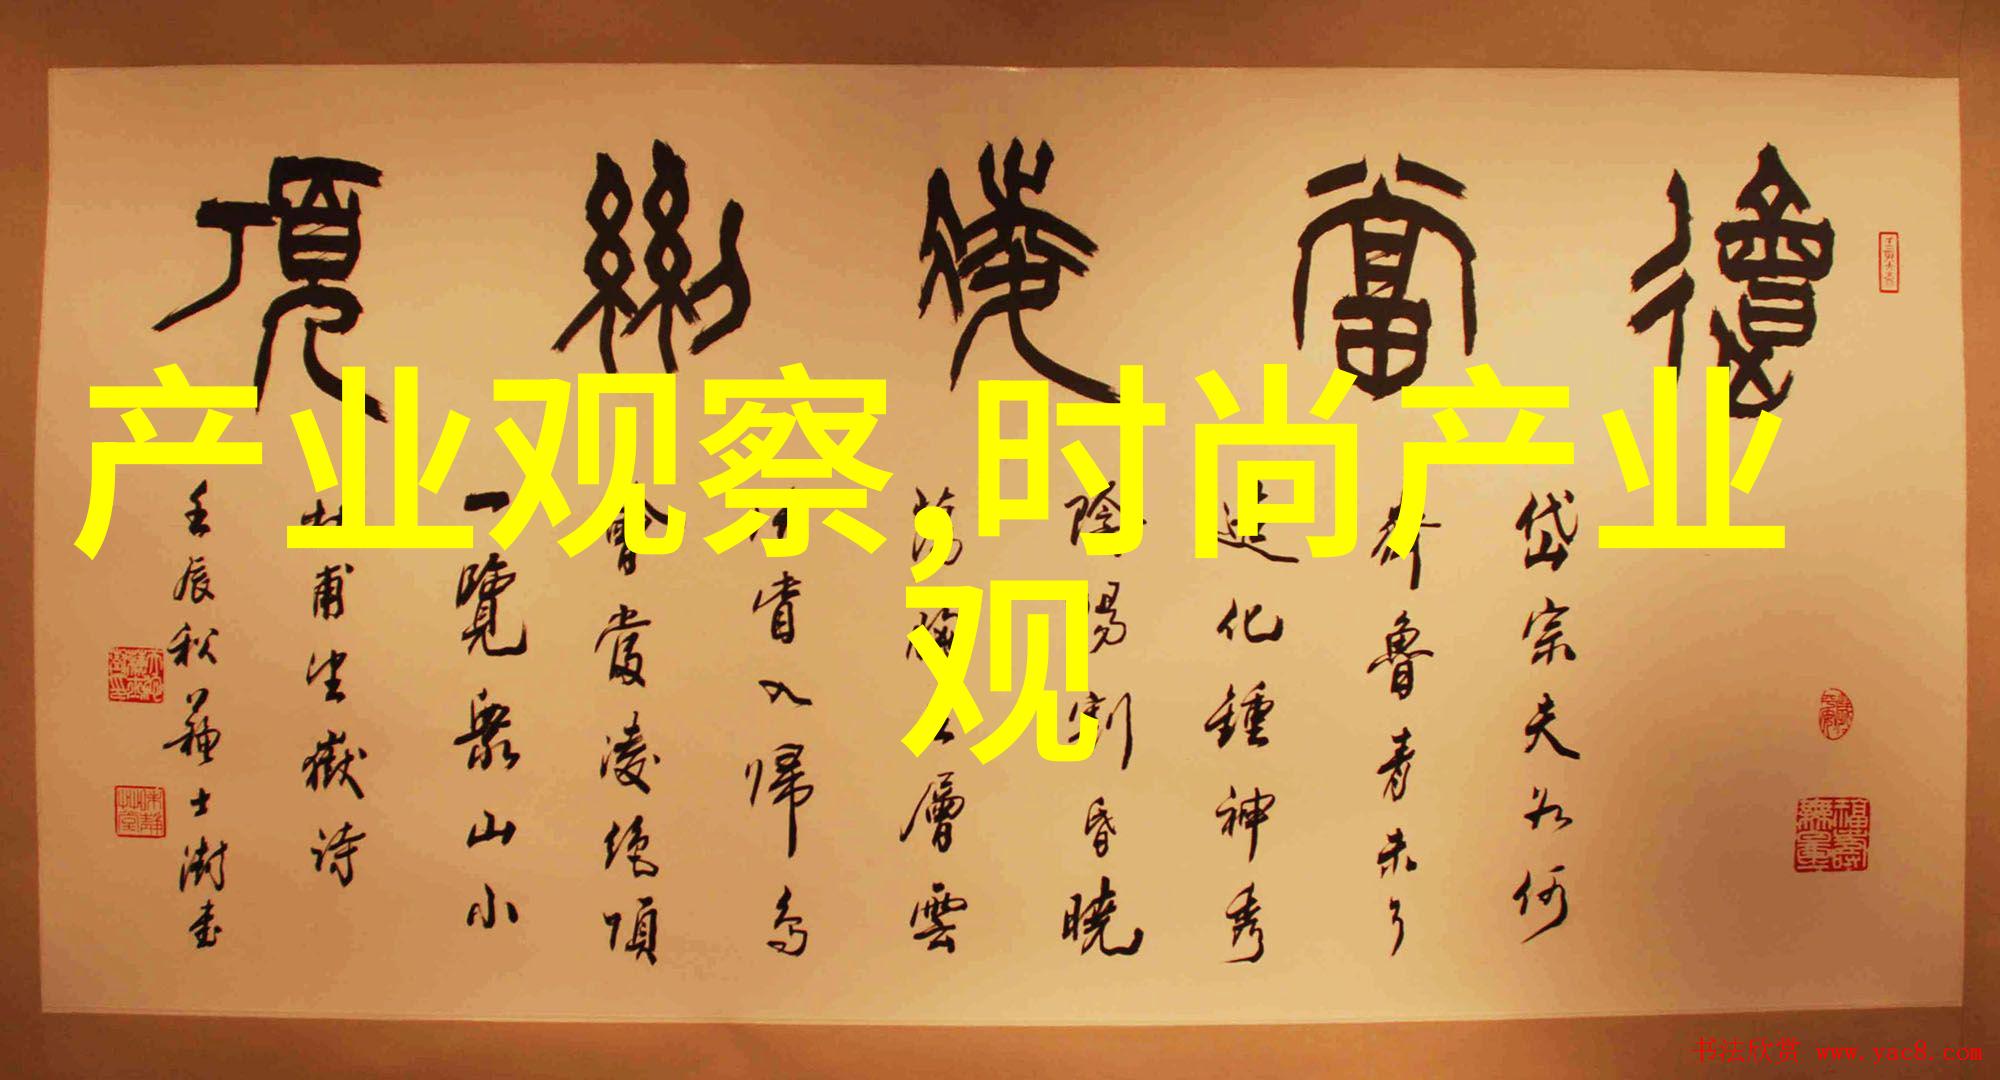 會當凌絕頂
岱宗夫如何
齊魯青未了
造化鍾神秀
陰陽割昏曉
蕩胸生層雲
決眥入歸鳥
會當凌絕頂
一覽眾山小
杜甫望嶽詩
壬辰秋蘇士澍書
福壽無量
产业观察,时尚产业
观
书法欣赏 www.yac8.com